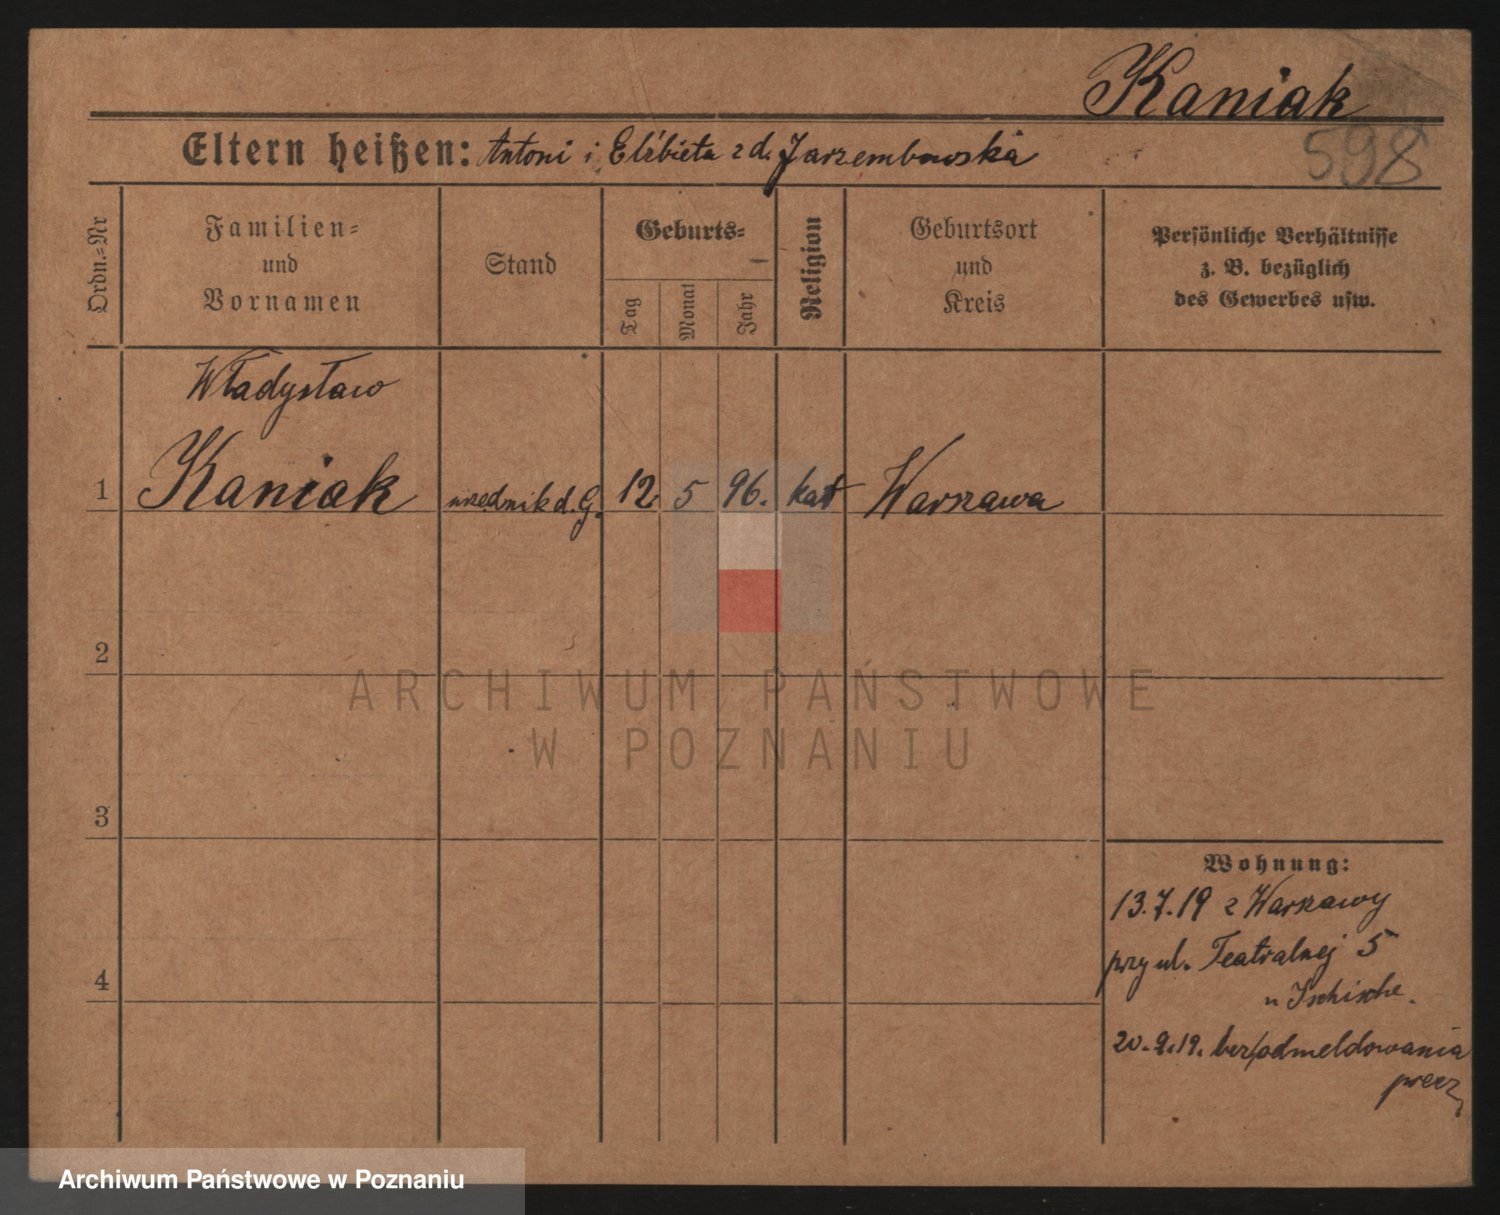 Kaniak
598
Eltern heißen: Antoni i Elżbieta z d. Jarzembowska
Ordn.=Nr
Familien=
und
Vornamen
Stand
Geburts=
Tag
Monat
Jahr
Religion
Geburtsort
und
Kreis
Persönliche Verhältnisse
z. B. bezüglich
des Gewerbes usw.
Władysław
1 Kaniak urzędnik d. G. 12 5 96. kat Warszawa
2
3
4
Wohnung:
13.7.19 z Warszawy
przy ul. Teatralnej 5
u
20.9.19. bez odmeldowania
precz
ARCHIWUM PAŃSTWOWE
W POZNANIU
Archiwum Państwowe w Poznaniu